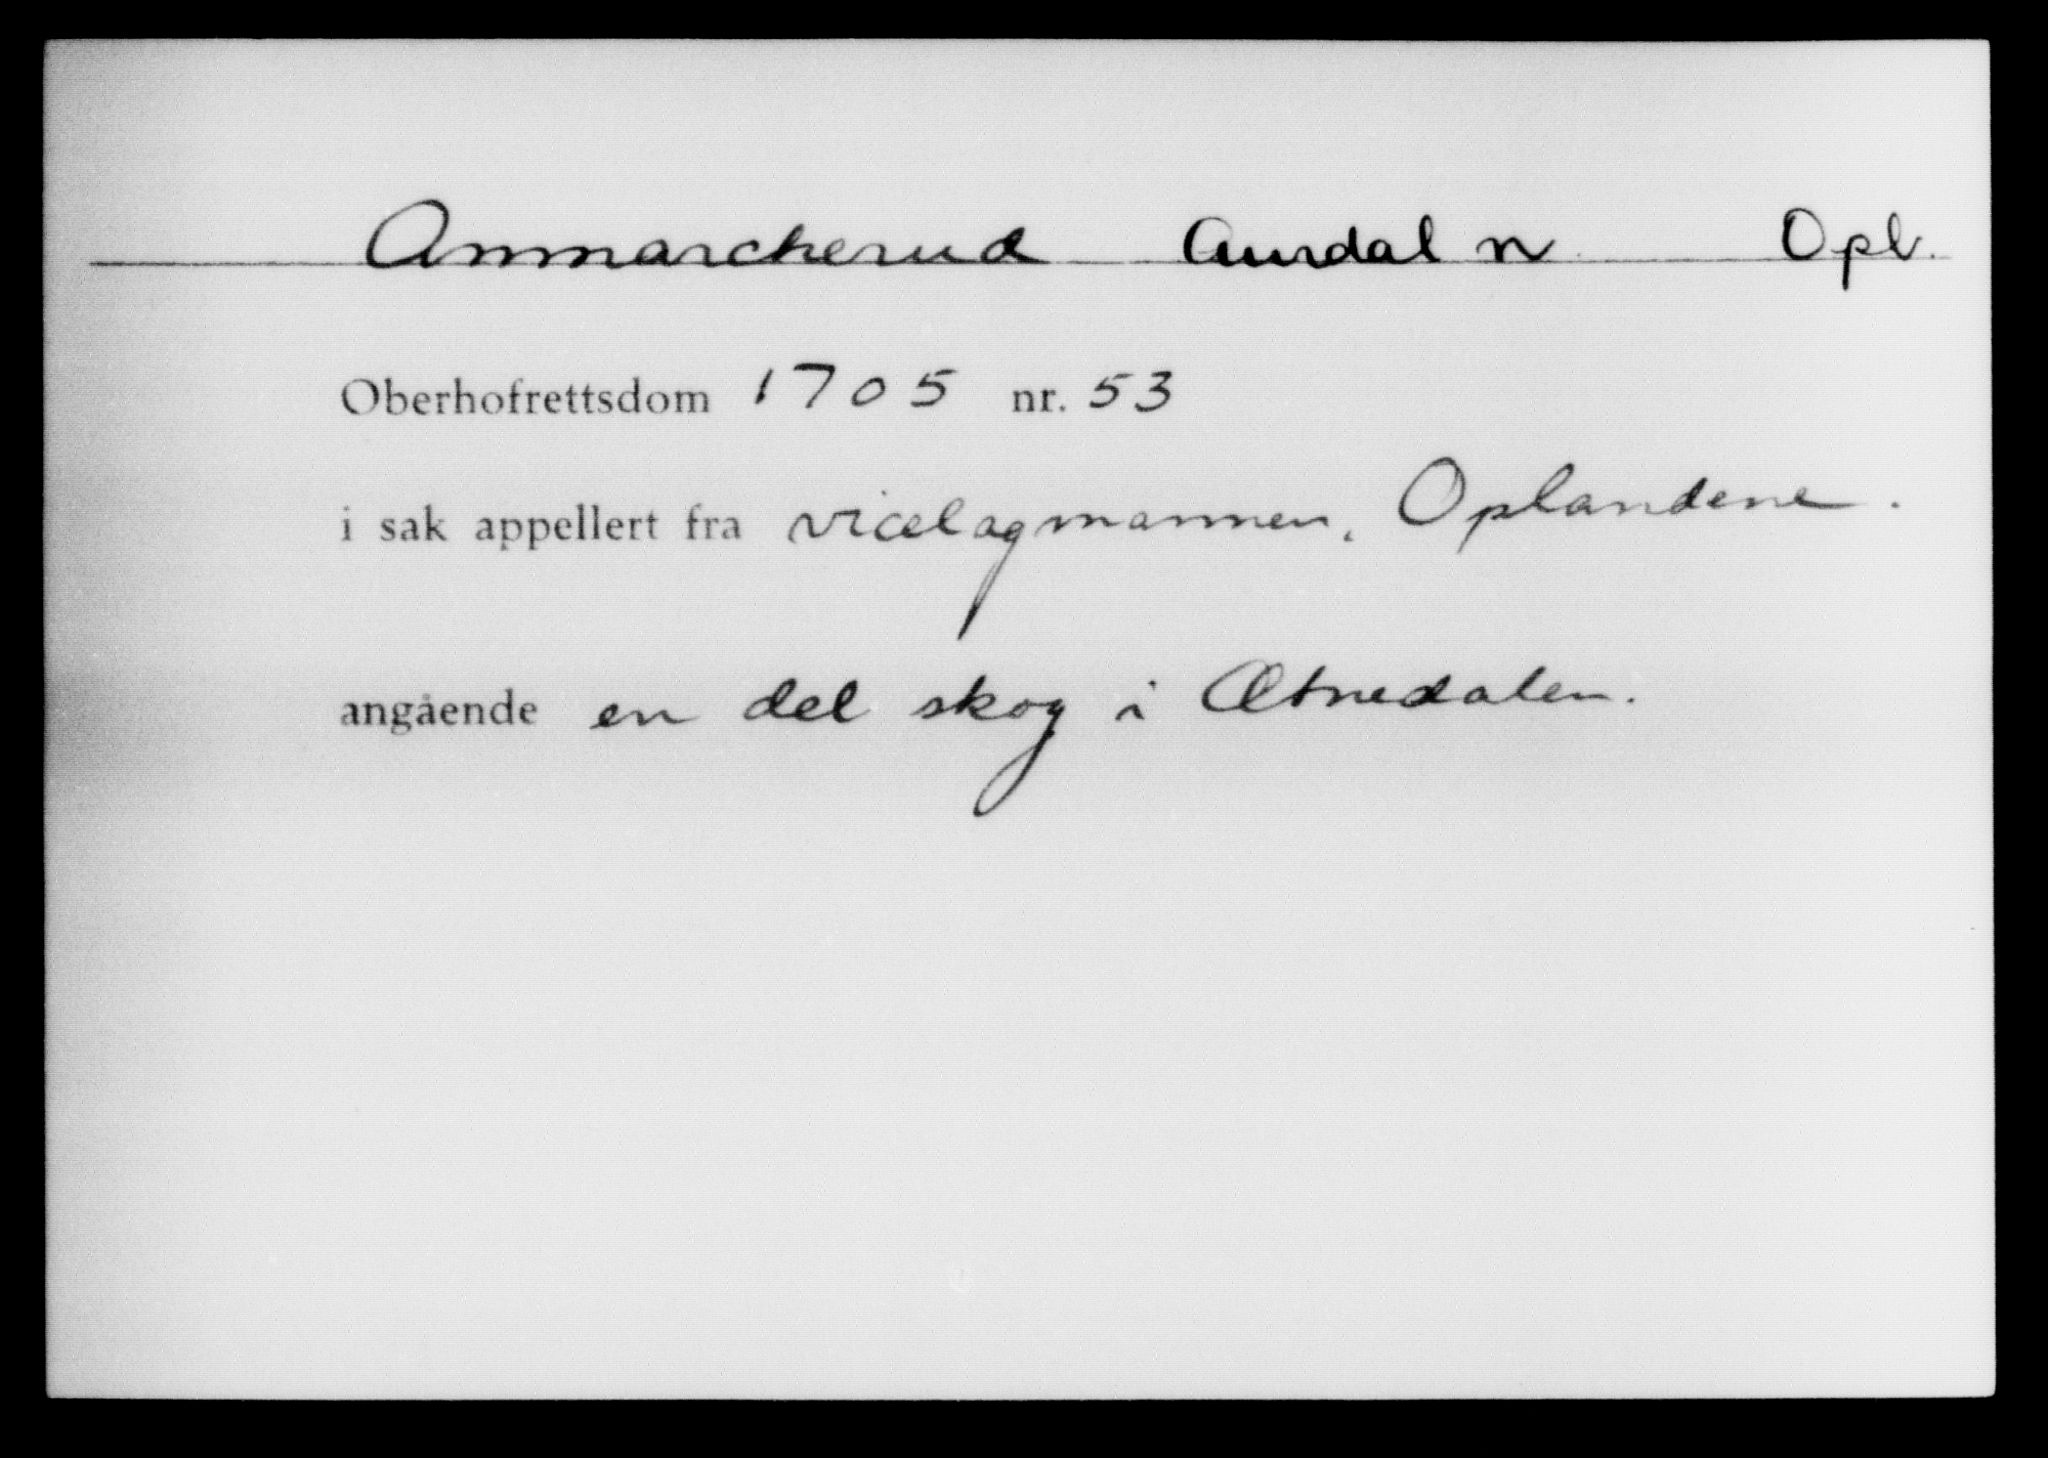 Ammarckerud Aurdal n Opl.
Oberhofrettsdom 1705 nr. 53
i sak appellert fra vicelagmannen, Oplandene.
angående en del skog i Ætnedalen.